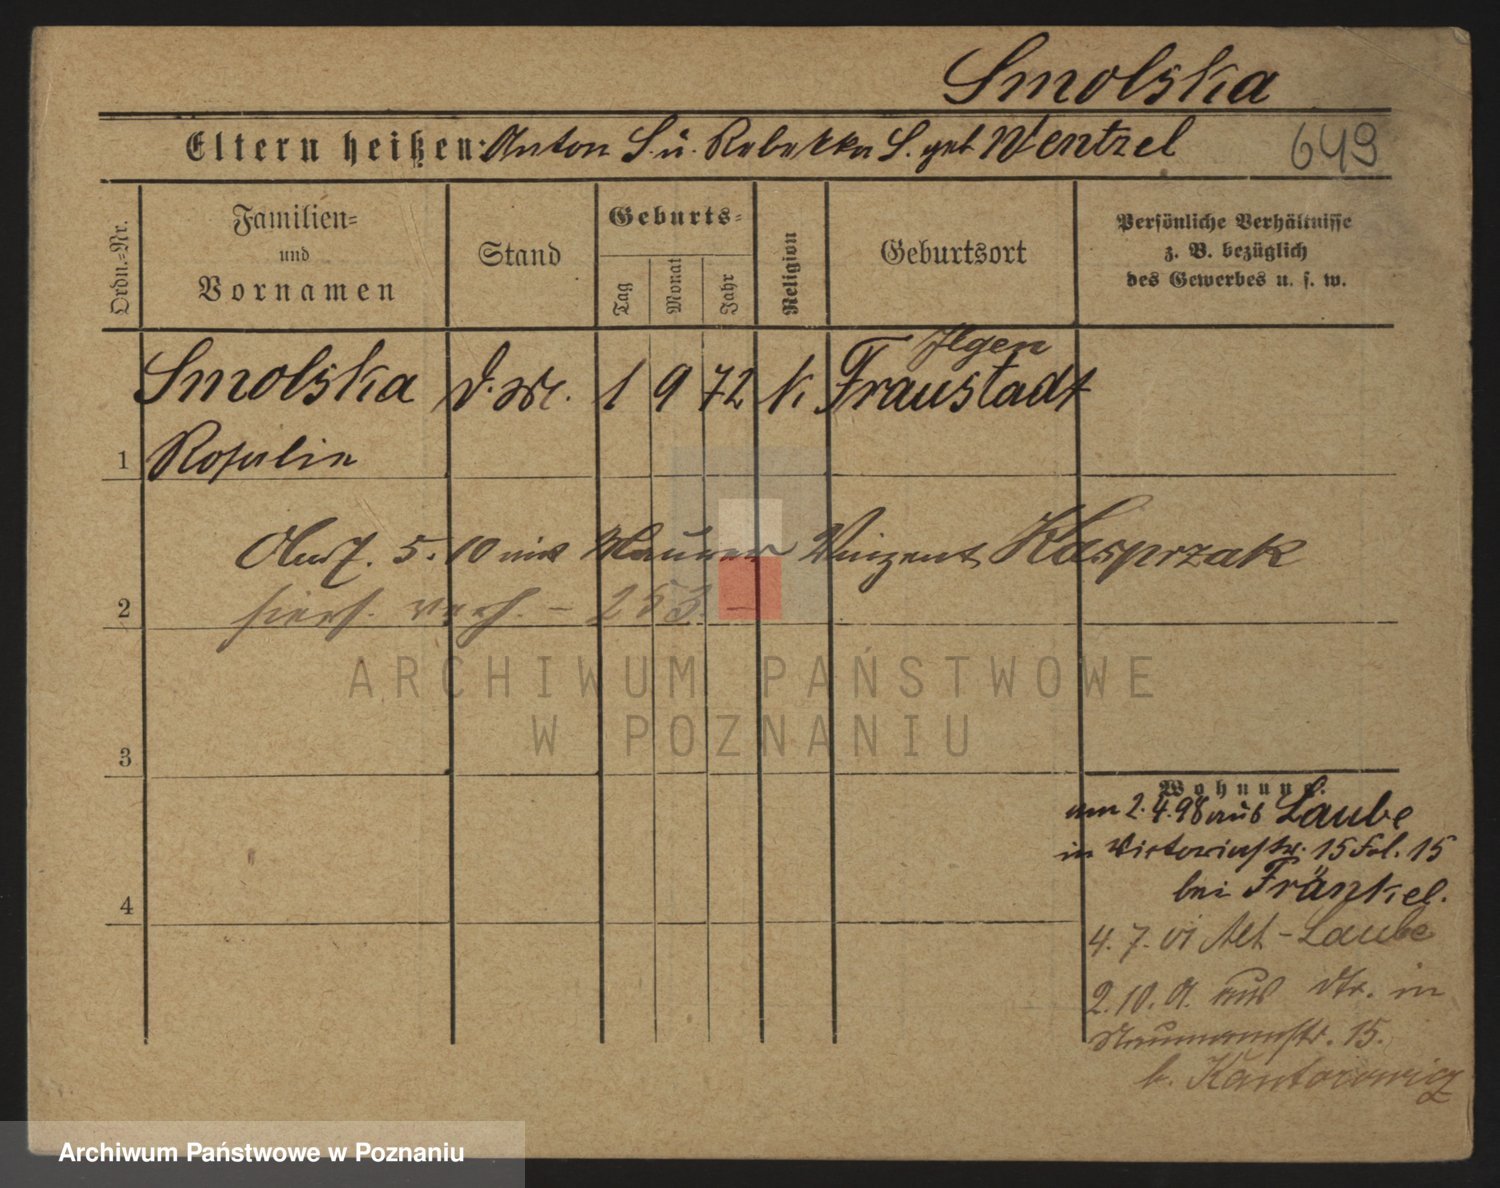 Smolska
Eltern heißen: Anton S. u. Rebekka S. geb Wentzel
649
Ordn.=Nr.
Familien=
und
Vornamen
Stand
Geburts=
Tag
Monat
Jahr
Religion
Geburtsort
Persönliche Verhältnisse
z. B. bezüglich
des Gewerbes u. s. w.
Ilgen
Smolska 1 9 72 k. Fraustadt
1 Rosalie
5. 10 mit Maurer Vinzent Kasprzak
2 hiers. verh. – 253. –
ARCHIWUM PAŃSTWOWE
W POZNANIU
3
Wohnung.
am 2.4.98 aus Laube
in Victoriastr. 15 Fol. 15
bei Fränkel.
4
4. 7. 01 Alt-Laube
2. 10. 01. aus dto. in
Naumannstr. 15.
b. Kantorowicz
Archiwum Państwowe w Poznaniu